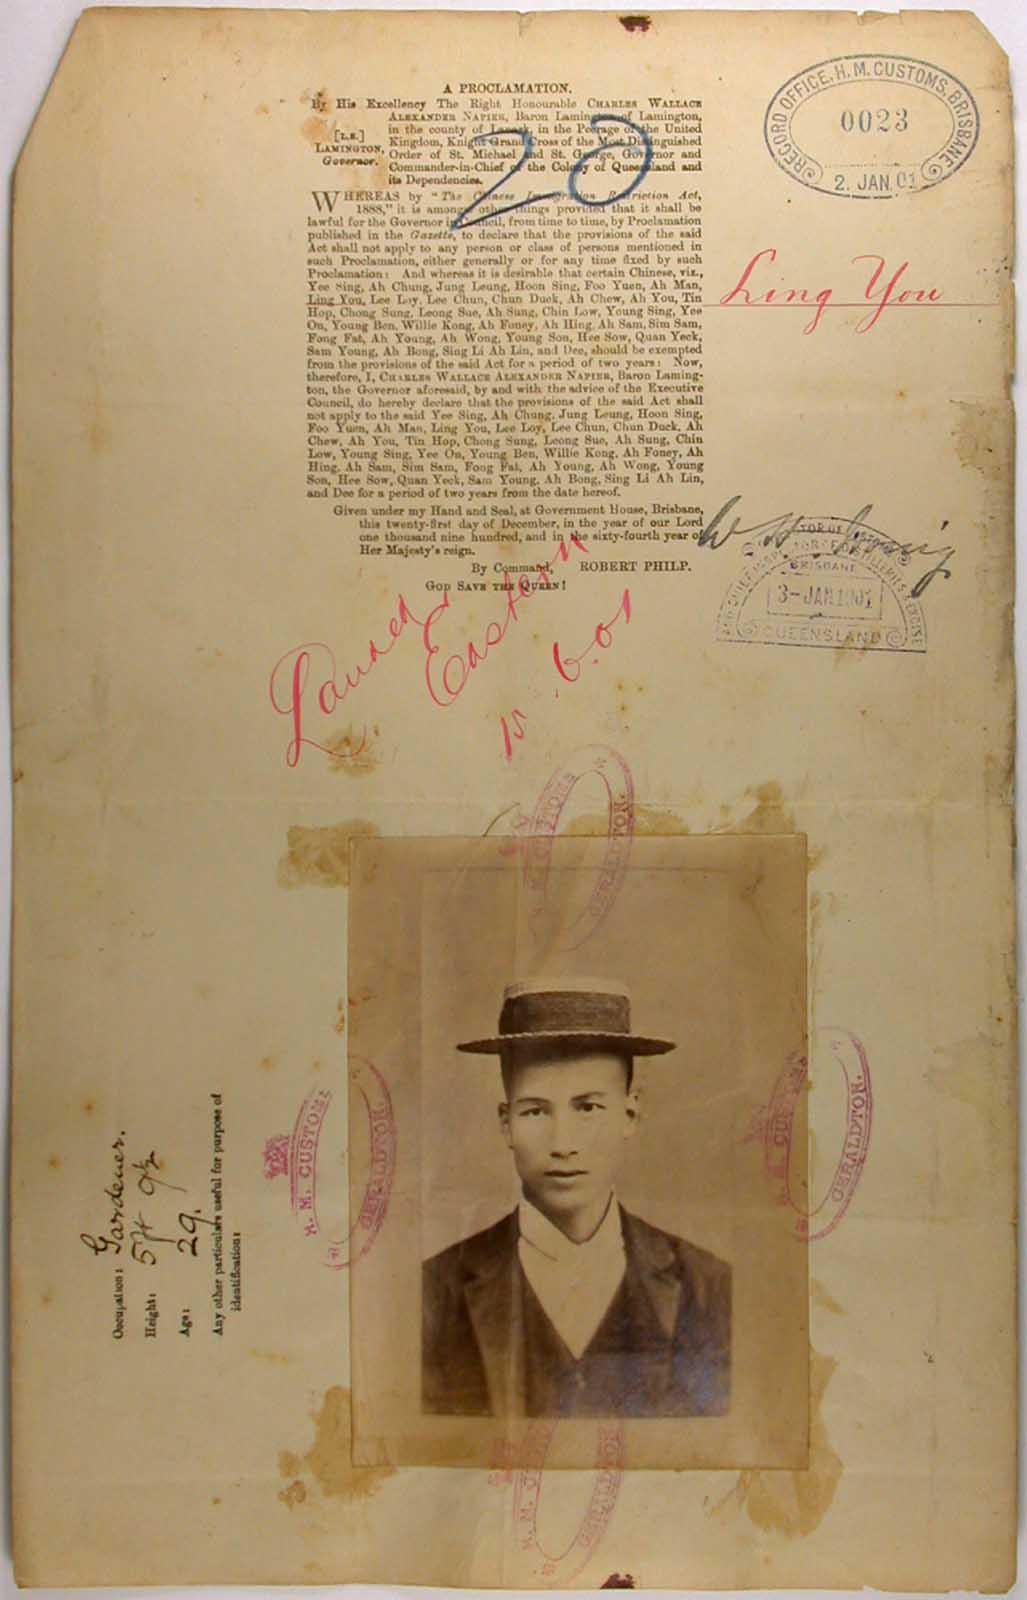 A PROCLAMATION.
By His Excellency The Right Honourable CHARLES WALLACE
ALEXANDER NAPIER, Baron Lamington, of Lamington,
in the county of Lanark, in the Peerage of the United
[L.S.]
Kingdom, Knight Grand Cross of the Most Distinguished
LAMINGTON,
Order of St. Michael and St. George, Governor and
Governor.
Commander-in-Chief of the Colony of Queensland and
its Dependencies.
20
WHEREAS by "The Chinese Immigration Restriction Act,
1888," it is amongst other things provided that it shall be
lawful for the Governor in Council, from time to time, by Proclamation
published in the Gazette, to declare that the provisions of the said
Act shall not apply to any person or class of persons mentioned in
such Proclamation, either generally or for any time fixed by such
Proclamation: And whereas it is desirable that certain Chinese, viz.,
Yee Sing, Ah Chung, Jung Leung, Hoon Sing, Foo Yuen, Ah Man,
Ling You, Lee Loy, Lee Chun, Chun Duck, Ah Chew, Ah You, Tin
Hop, Chong Sung, Leong Sue, Ah Sung, Chin Low, Young Sing, Yee
On, Young Ben, Willie Kong, Ah Foney, Ah Hing, Ah Sam, Sim Sam,
Fong Fat, Ah Young, Ah Wong, Young Son, Hee Sow, Quan Yeck,
Sam Young, Ah Bong, Sing Li Ah Lin, and Dee, should be exempted
from the provisions of the said Act for a period of two years: Now,
therefore, I, CHARLES WALLACE ALEXANDER NAPIER, Baron Laming-
ton, the Governor aforesaid, by and with the advice of the Executive
Council, do hereby declare that the provisions of the said Act shall
not apply to the said Yee Sing, Ah Chung, Jung Leung, Hoon Sing,
Foo Yuen, Ah Man, Ling You, Lee Loy, Lee Chun, Chun Duck, Ah
Chew, Ah You, Tin Hop, Chong Sung, Leong Sue, Ah Sung, Chin
Low, Young Sing, Yee On, Young Ben, Willie Kong, Ah Foney, Ah
Hing, Ah Sam, Sim Sam, Fong Fat, Ah Young, Ah Wong, Young
Son, Hee Sow, Quan Yeck, Sam Young, Ah Bong, Sing Li Ah Lin,
and Dee for a period of two years from the date hereof.
Given under my Hand and Seal, at Government House, Brisbane,
this twenty-first day of December, in the year of our Lord
one thousand nine hundred, and in the sixty-fourth year of
Her Majesty's reign.
By Command, ROBERT PHILP.
GOD SAVE THE QUEEN!
RECORD OFFICE, H. M. CUSTOMS, BRISBANE
0023
2. JAN. 01
Ling You
BRISBANE
3-JAN 1901
QUEENSLAND
Landed
Eastern
6.01
H. M. CUSTOMS
GERALDTON.
H. M. CUSTOMS
GERALDTON.
H. M. CUSTOMS
GERALDTON.
H. M.
GERALDTON
Occupation: Gardener.
Height: 5ft 9½
Age: 29.
Any other particulars useful for purpose of
identification: